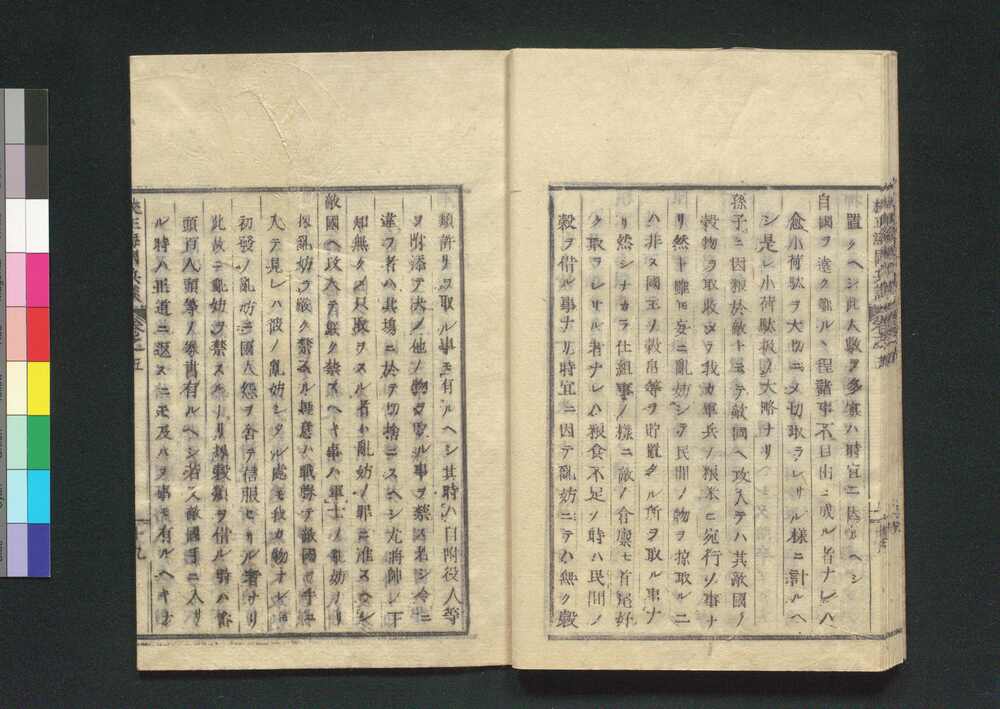 置クヘシ此人數ヲ多寡ハ時宜ニ因ルヘシ
自國ヲ遠ク離ル丶程諸事不自由ニ成ル者ナレハ
愈小荷駄ヲ大切ニメ切取ラレサル様ニ計ルヘ
シ是レ小荷駄扱ノ大略ナリ
孫子ニ因粮於敵トミテ敵國ヘ攻入テハ其敵國ノ
穀物ヲ取收メテ我カ軍兵ノ粮米ニ宛行ソ事ナ
リ然ト雖ﾓ妄ニ亂妨シテ民間ノ物ヲ掠取ルニ
ハ非ス國主ノ穀帛等ヲ貯置タル所ヲ取ル事ナ
リ然シナカラ仕組事ノ様ニ敵ノ倉廩モ首尾好
ク取ラレサル者ナレハ粮食不足ノ時ハ民間ノ
穀ヲ借ル事ナリ尤時宜ニ因テ亂妨ニテハ無ク穀
類計リヲ取ル事モ有ルヘシ其時ハ目附役人等
ヲ附添テ穴ノ他ノ物ヲ取ル事ヲ禁ス若シ令ニ
違フ者ハ其場ニ於テ切捨ニスヘシ尤將帥ノ下
知無クメ只取ヲスル者ハ亂妨ノ罪ニ准スヘシ
敵國ヘ攻入テ嚴ク禁スヘキ事ハ軍士ノ亂妨ノリ
探亂妨ヲ嚴ク禁スル極意ハ戰勝テ敵國ヲ手ニ
入テ見レハ彼ノ亂妨シタル處モ我カ物ナレハ
初發ノ亂妨ニ國人怨ヲ含テ信服セサル者ナリ
此故ニ亂妨ヲ禁スルナリ扨穀類ヲ借ル時ハ番
頭百人頭等ノ券書有ルヘシ若シ敵國手ニ入リ
ル時ハ無道ニ返スニモ及ハヌ事モ有ルヘキナ